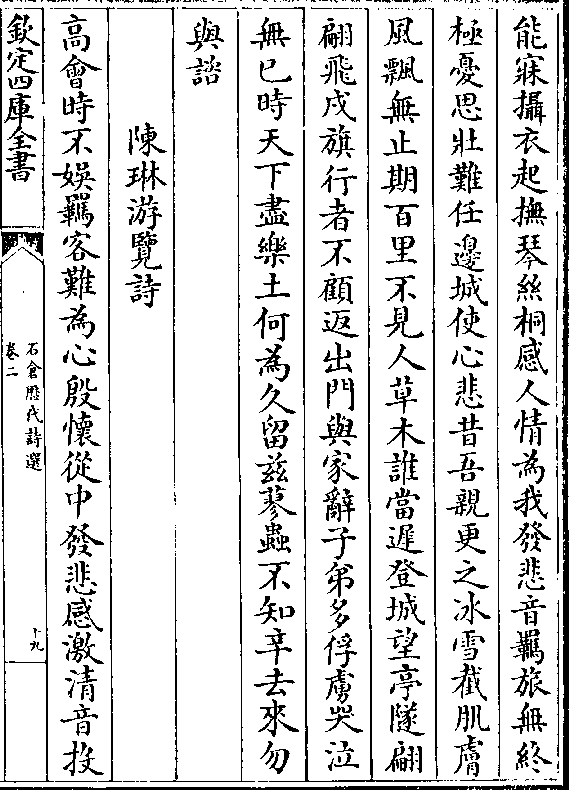 能寐攝衣起撫琴絲桐感人情為我發悲音羈旅無終
極憂思壯難任邊城使心悲昔吾親更之冰雪截肌膚
風飄無止期百里不見人草木誰當遲登城望亭隧翩
翩飛戍旗行者不顧返出門與家辭子弟多俘虜哭泣
無已時天下盡樂土何為久留兹蓼蟲不知辛去來勿
與諮
陳琳游覽詩
高會時不娱羈客難為心殷懷從中發悲感激清音投
欽定四庫全書
石倉歷代詩選
卷二
十九